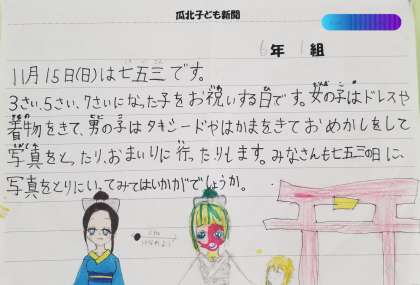 瓜北子ども新聞
6年 1組
11月15日(日)は七五三です。
3さい、5さい、7さいになった子をお祝いする日です。女の子はドレスや
着物をきて、男の子はタキシードやはかまをきておめかしをして
写真をとったり、おまいりに行ったりします。みなさんも七五三の日に、
写真をとりにいってみてはいかがでしょうか。